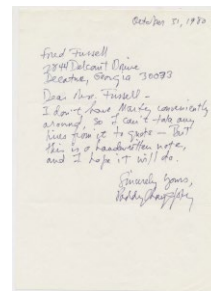 October 31, 1980
Fred Fussell
2844 Delcourt Drive
Decatur, Georgia 30033
Dear Mr. Fussell -
I don't have Nov conveniently
around, so I can't take any
lines from it to quote - But
this is a handwritten note,
and I hope it will do.
Sincerely Yours,